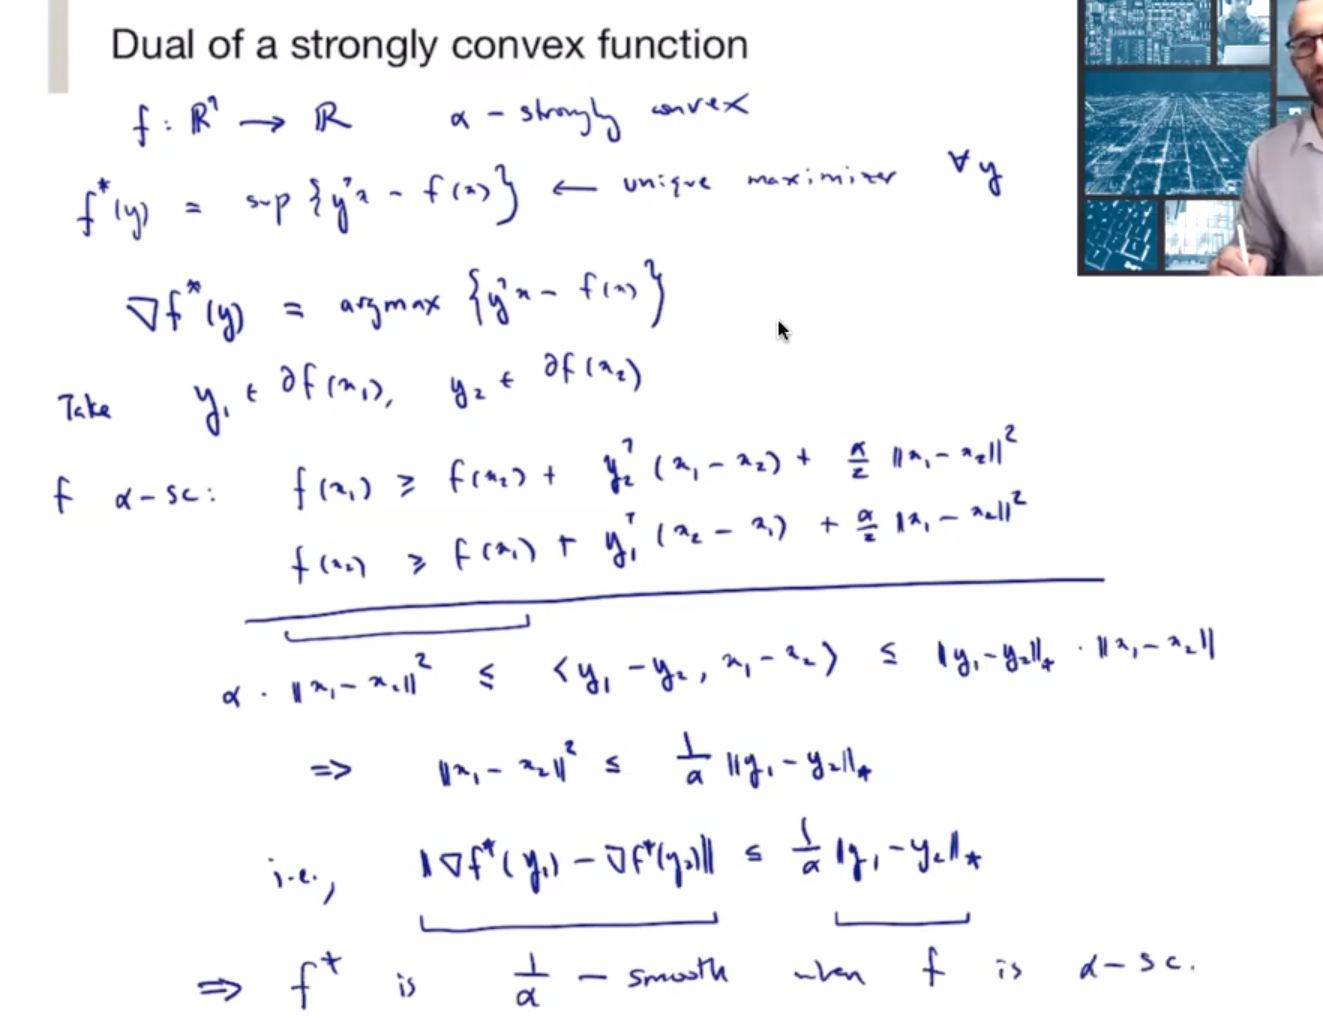 Dual of a strongly convex function
f : ℝⁿ → ℝ α - strongly convex
f*(y) = sup {yᵀx - f(x)} ← unique maximizer ∀ y
∇f*(y) = argmax {yᵀx - f(x)}
Take y₁ ∈ ∂f(x₁), y₂ ∈ ∂f(x₂)
f α-sc: f(x₁) ≥ f(x₂) + y₂ᵀ(x₁ - x₂) + α/2 ‖x₁ - x₂‖²
f(x₂) ≥ f(x₁) + y₁ᵀ(x₂ - x₁) + α/2 ‖x₁ - x₂‖²
α · ‖x₁ - x₂‖² ≤ ⟨y₁ - y₂, x₁ - x₂⟩ ≤ ‖y₁ - y₂‖* · ‖x₁ - x₂‖
⇒ ‖x₁ - x₂‖² ≤ 1/α ‖y₁ - y₂‖*
i.e., ‖∇f*(y₁) - ∇f*(y₂)‖ ≤ 1/α ‖y₁ - y₂‖*
⇒ f* is 1/α - smooth when f is α-sc.